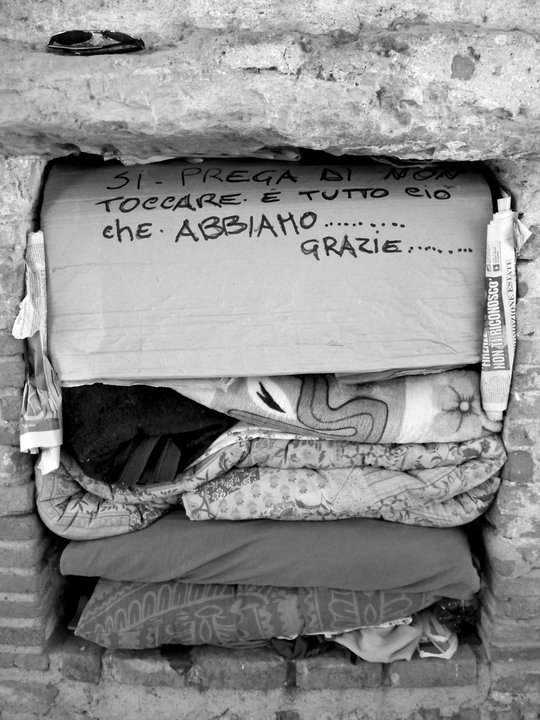 SI. PREGA DI NON
TOCCARE. È TUTTO CIÒ
Che. ABBIAMO.........
GRAZIE.........
NON TI RICONOSCO'